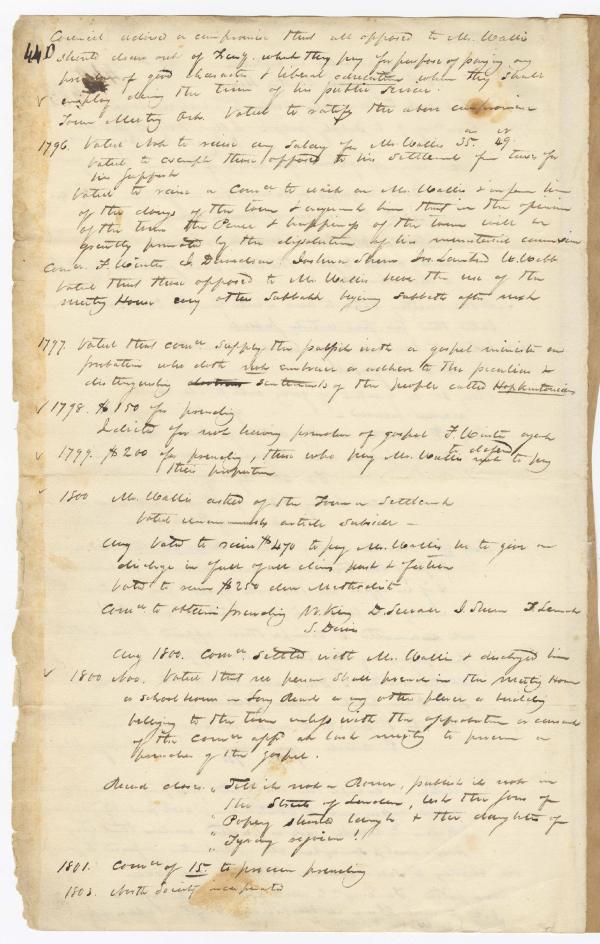 44D
Council advised a compromise that all opposed to Mr. Wallis
should draw out of Treasy. what they pay for purpose of paying any
preacher of good character & liberal education when they shall
employ during the term of his public service.
Town Meeting Voted to ratify the above compromise
1796. Voted not to raise any salary for Mr. Wallis 35. 49.
Voted to exempt those opposed to his settlement from taxes for
his support
Voted to raise a Comee to wait on Mr. Wallis & inform him
of the doings of the town & acquaint him that in the opinion
of the town the Peace & happiness of the town will be
greatly promoted by the dissolution of his ministerial connexion
Comee
Voted that those opposed to Mr. Wallis have the use of the
meeting House every other Sabbath begining Sabbath after next
1797. Voted that comee supply the pulpit with a gospel minister on
probation who doth not embrace or adhere to the peculiar &
distinguishing sentiments of the people called Hopkintonians
1798. $150 for preaching
Indicted for not having preacher of gospel
1799. $200 for preaching, those who pay Mr. Wallis not to pay
their proportion
1800 Mr. Wallis asked of the Town a Settlemt
Voted unanimously article subside –
Aug Voted to raise $470 to pay Mr. Wallis he to give a
discharge in full of all claims past & future
Voted to raise $250 Methodist
Comee to obtain preaching N. King D. Sewall
S. Davis
Aug 1800. Comee. settled with Mr. Wallis & discharged him
1800 Nov. Voted that no person shall preach in the meeting House
or school House or any other place or building
belonging to the town unless with the approbation or consent
of the comee appt. at last meeting to procure a
preacher of the gospel.
Record closes. "Tell it not in Rome, publish it not in
"the Streets of London, lest the sons of
"Popery should laugh & the daughters of
"Tyrany rejoice!
1801. Comee of 15. to procure preaching
1803. North Society incorporated